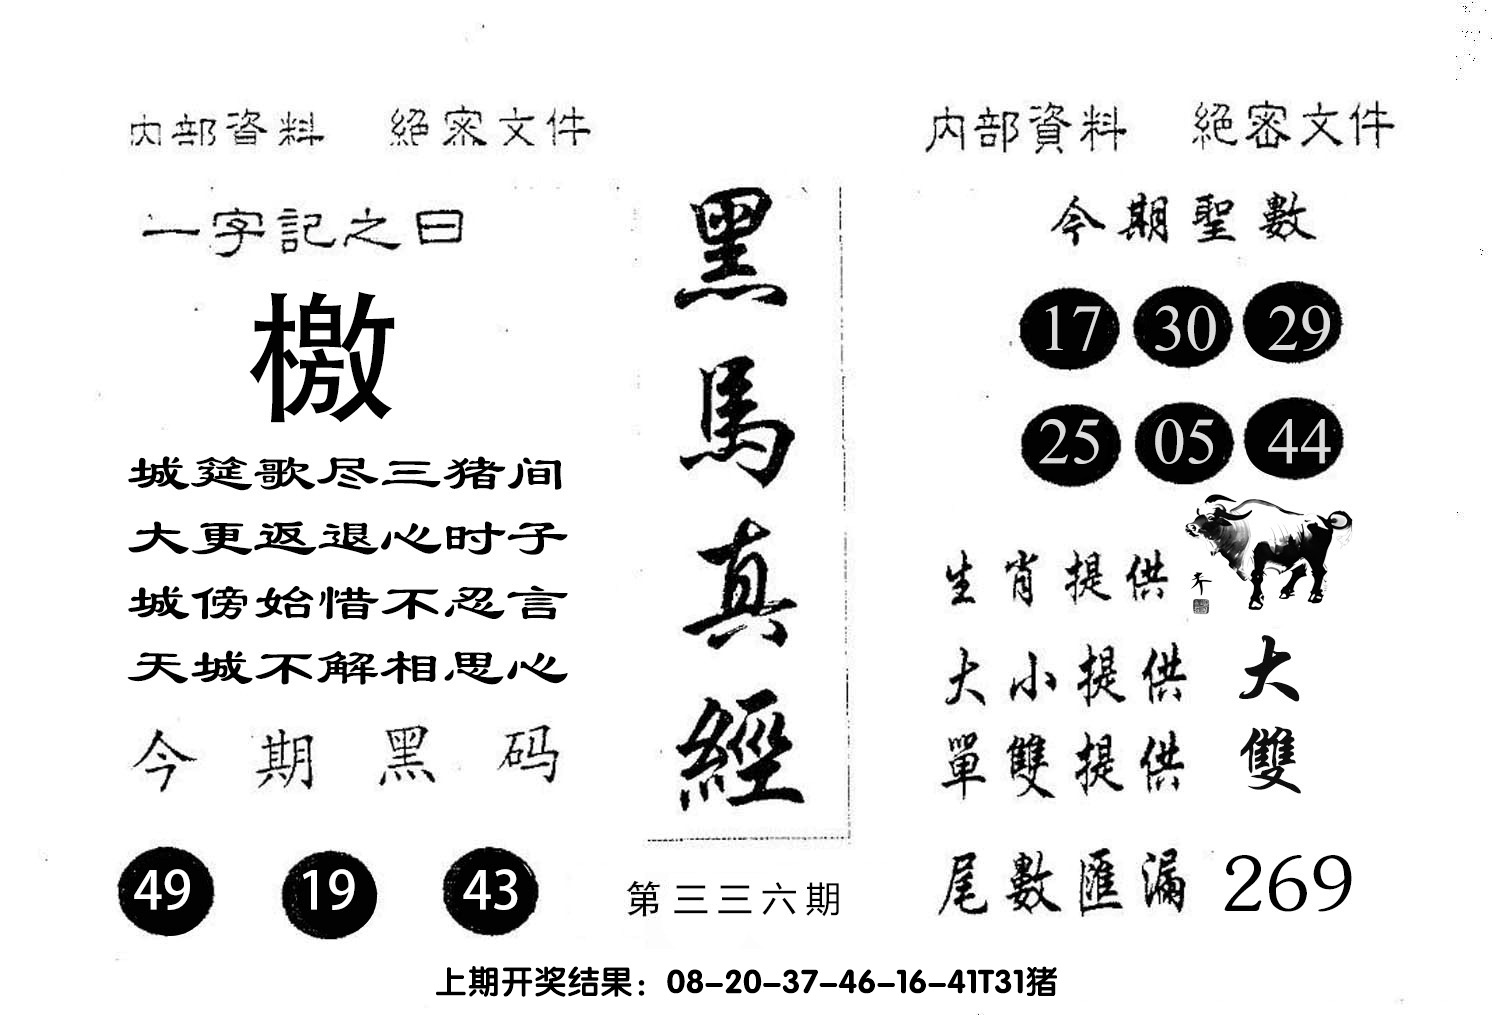 内部資料 絕密文件
一字記之曰
檄
城筵歌尽三猪间
大更返退心时子
城傍始惜不忍言
天城不解相思心
今期黑码
49 19 43
黑馬真經
第三三六期
内部資料 絕密文件
今期聖數
17 30 29
25 05 44
生肖提供
大小提供 大
單雙提供 雙
尾數匯漏 269
上期开奖结果：08-20-37-46-16-41T31猪